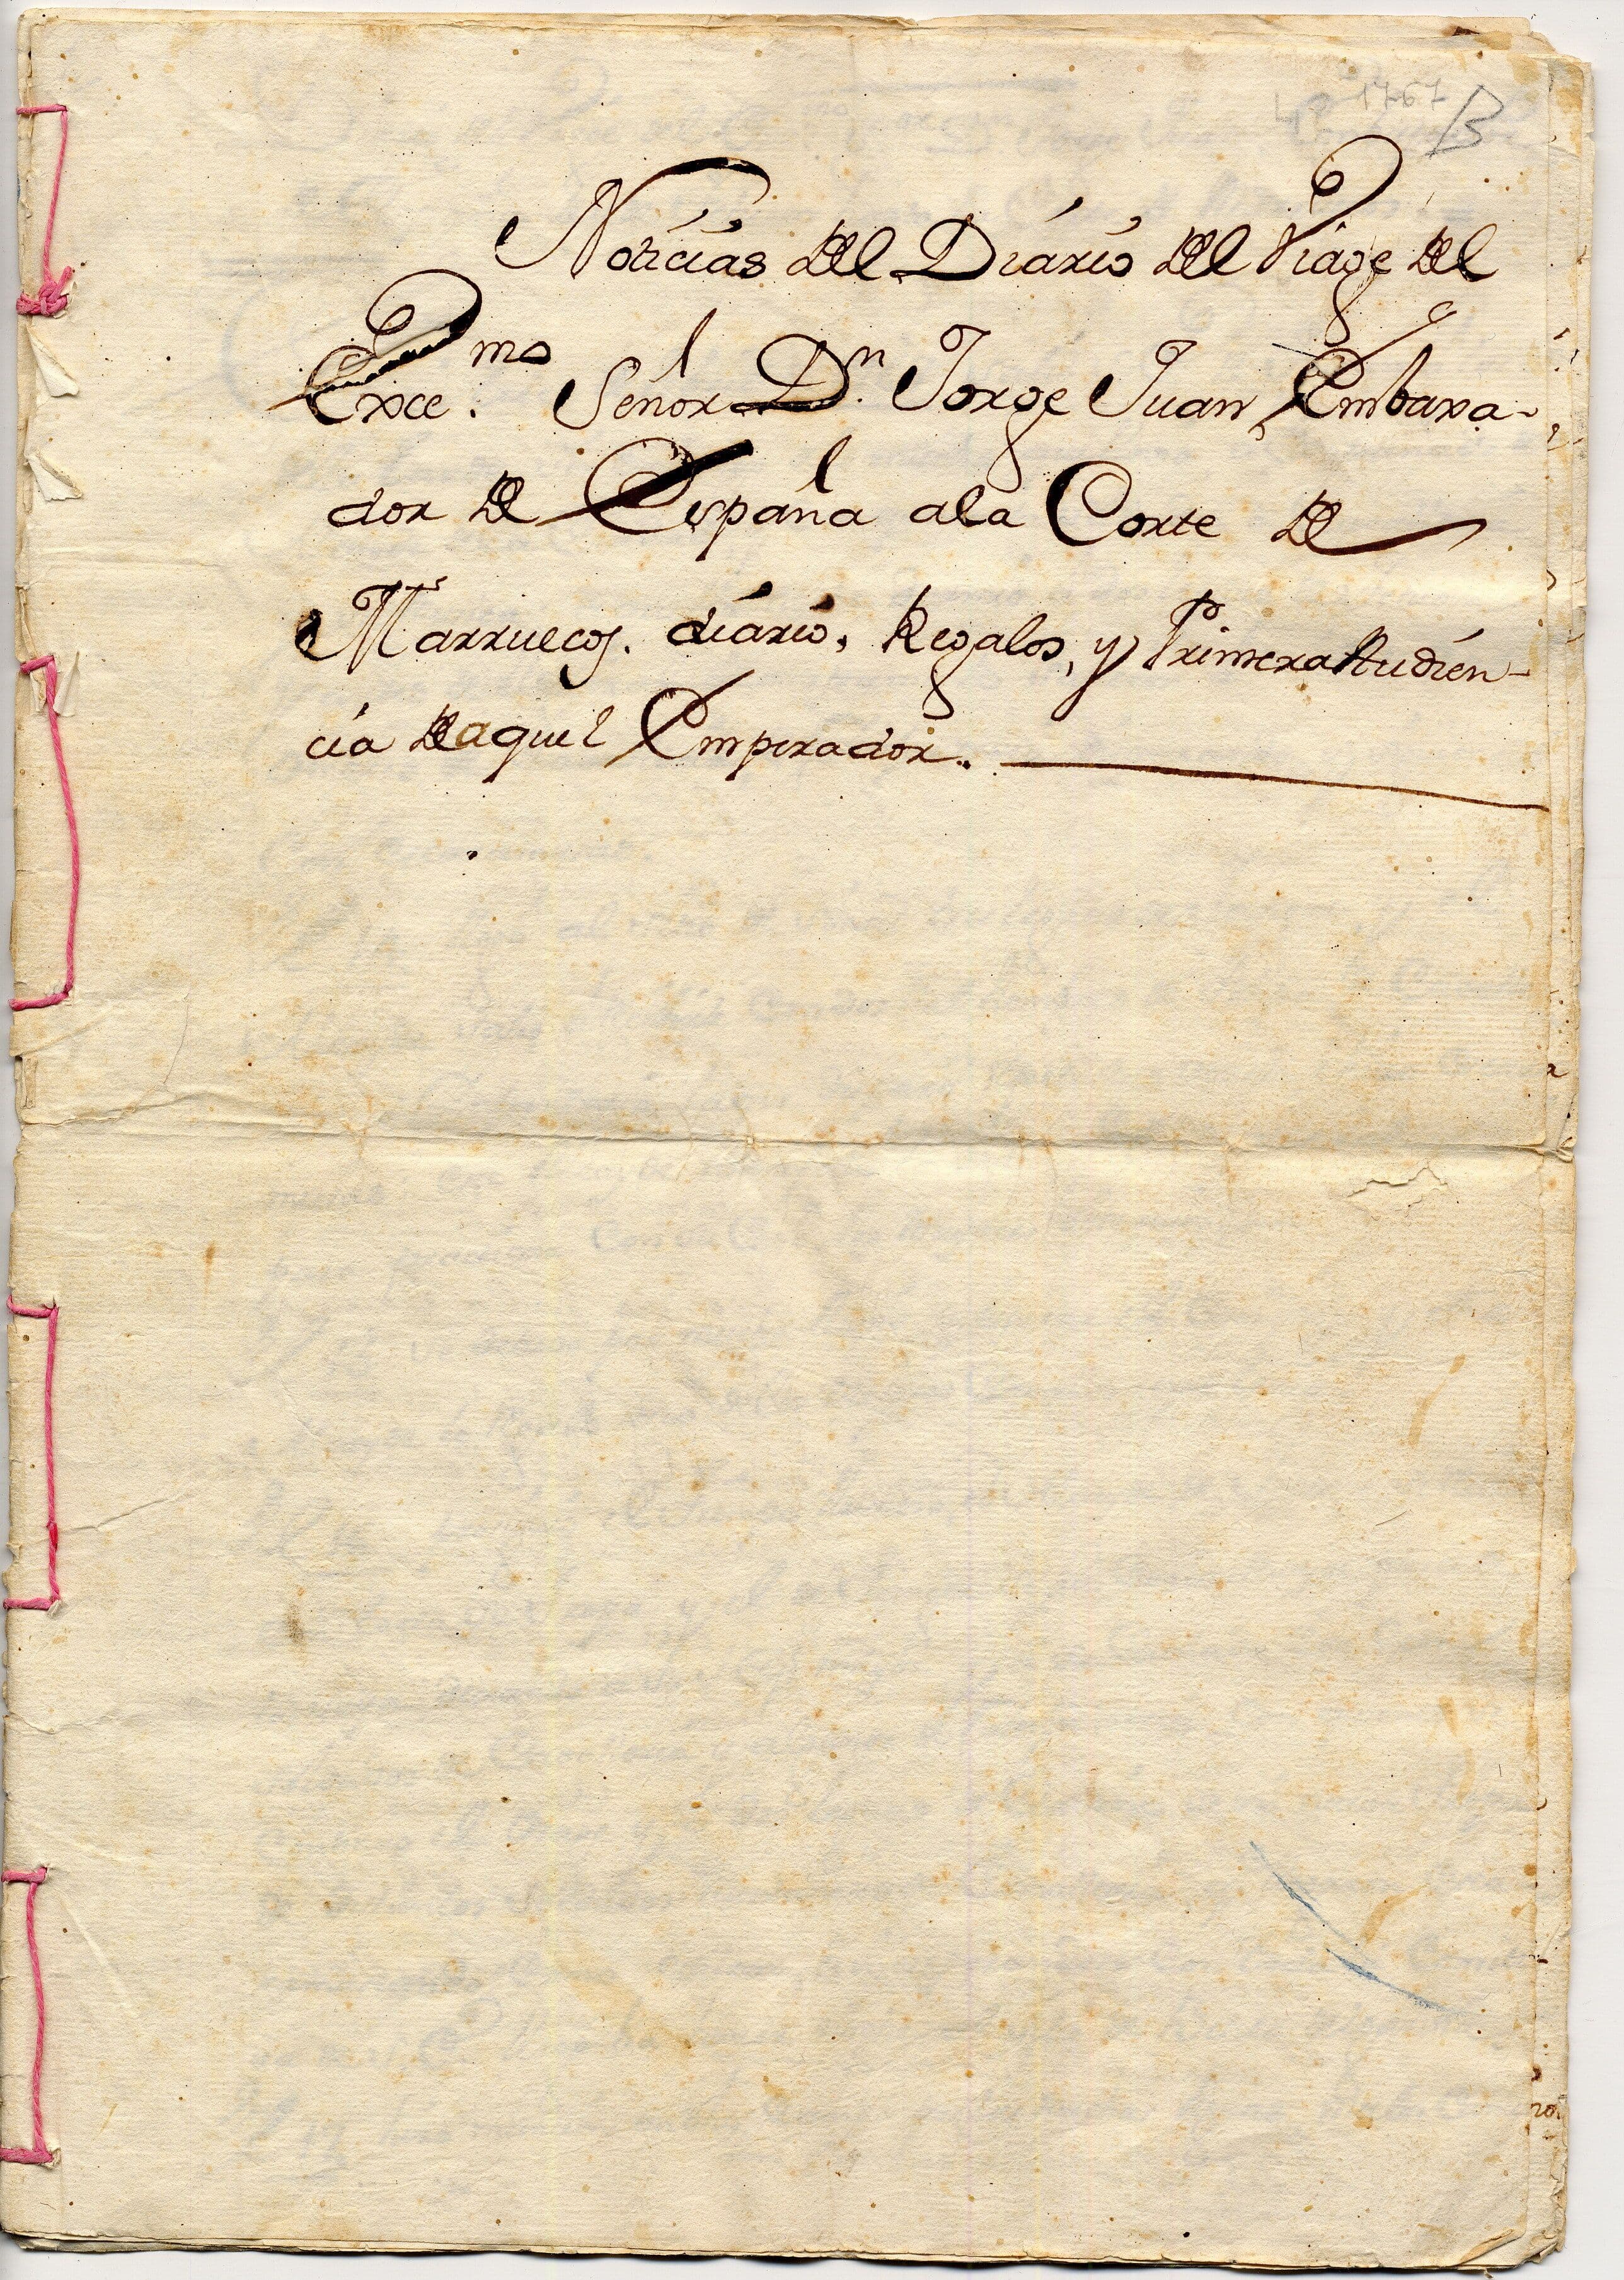 1767 B
Noticias del Diario del Viage del
Exce.mo Señor Dn. Jorge Juan, Embaxa-
dor de España ala Corte de
Marruecos. diario, Regalos, y Primera Audien-
cia de aquel Emperador..